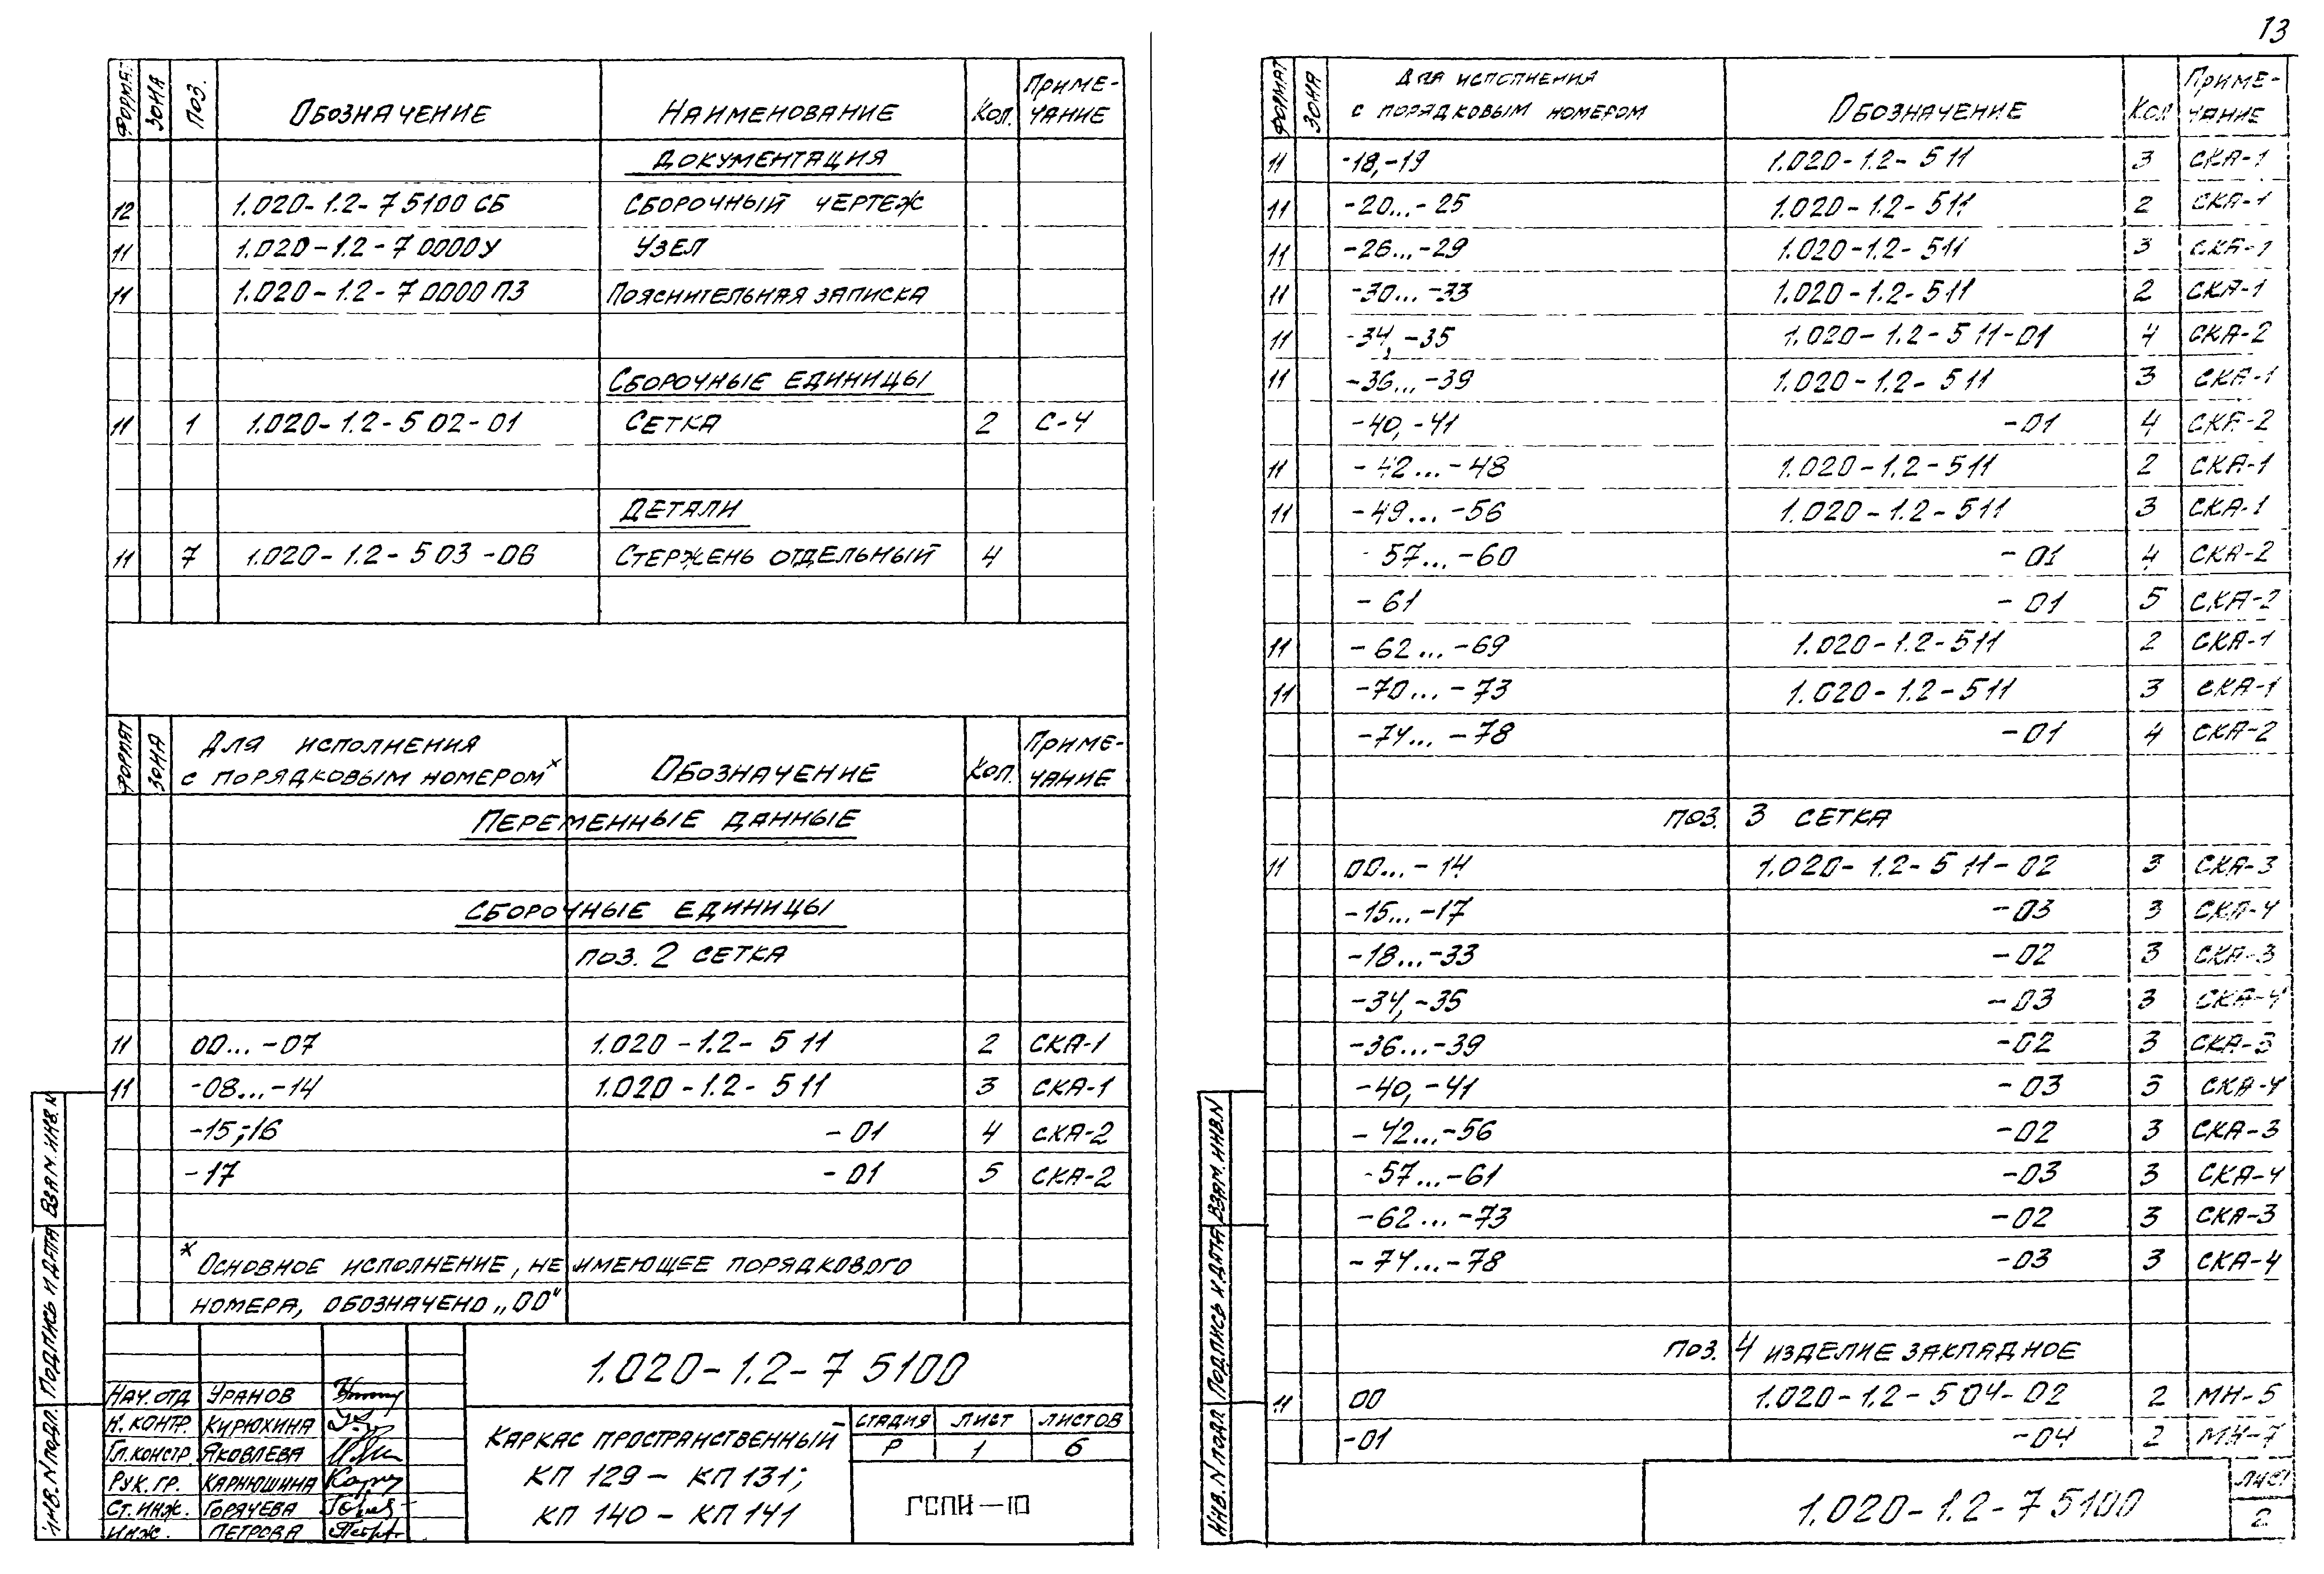 13
ФОРМАТ ЗОНА ПОЗ. ОБОЗНАЧЕНИЕ НАИМЕНОВАНИЕ КОЛ. ПРИМЕ-ЧАНИЕ
ДОКУМЕНТАЦИЯ
12 1.020-1.2-7 5100 СБ СБОРОЧНЫЙ ЧЕРТЕЖ
11 1.020-1.2-7 0000У УЗЕЛ
11 1.020-1.2-7 0000 ПЗ ПОЯСНИТЕЛЬНАЯ ЗАПИСКА
СБОРОЧНЫЕ ЕДИНИЦЫ
11 1 1.020-1.2-5 02-01 СЕТКА 2 С-4
ДЕТАЛИ
11 7 1.020-1.2-5 03-06 СТЕРЖЕНЬ ОТДЕЛЬНЫЙ 4
ФОРМАТ ЗОНА ДЛЯ ИСПОЛНЕНИЯ С ПОРЯДКОВЫМ НОМЕРОМ* ОБОЗНАЧЕНИЕ КОЛ. ПРИМЕ-ЧАНИЕ
ПЕРЕМЕННЫЕ ДАННЫЕ
СБОРОЧНЫЕ ЕДИНИЦЫ
ПОЗ. 2 СЕТКА
11 00...-07 1.020-1.2-5 11 2 СКА-1
11 -08...-14 1.020-1.2-5 11 3 СКА-1
-15;-16 -01 4 СКА-2
-17 -01 5 СКА-2
* ОСНОВНОЕ ИСПОЛНЕНИЕ, НЕ ИМЕЮЩЕЕ ПОРЯДКОВОГО
НОМЕРА, ОБОЗНАЧЕНО „00"
1.020-1.2-7 5100
НАЧ. ОТД УРАНОВ
Н. КОНТР. КИРЮХИНА
ГЛ. КОНСТР ЯКОВЛЕВА
РУК. ГР. КАРНЮШИНА
СТ. ИНЖ. ГОРЯЧЕВА
ИНЖ. ПЕТРОВА
КАРКАС ПРОСТРАНСТВЕННЫЙ
КП 129 - КП 131;
КП 140 - КП 141
СТАДИЯ ЛИСТ ЛИСТОВ
Р 1 6
ГСПИ-10
ИНВ. N ПОДЛ. ПОДПИСЬ И ДАТА ВЗАМ. ИНВ. N
ФОРМАТ ЗОНА ДЛЯ ИСПОЛНЕНИЯ С ПОРЯДКОВЫМ НОМЕРОМ ОБОЗНАЧЕНИЕ КОЛ ПРИМЕ-ЧАНИЕ
11 -18,-19 1.020-1.2-5 11 3 СКА-1
11 -20...-25 1.020-1.2-511 2 СКА-1
11 -26...-29 1.020-1.2-511 3 СКА-1
11 -30...-33 1.020-1.2-511 2 СКА-1
11 -34,-35 1.020-1.2-5 11-01 4 СКА-2
11 -36...-39 1.020-1.2-511 3 СКА-1
-40,-41 -01 4 СКА-2
11 -42...-48 1.020-1.2-511 2 СКА-1
11 -49...-56 1.020-1.2-511 3 СКА-1
-57...-60 -01 4 СКА-2
-61 -01 5 СКА-2
11 -62...-69 1.020-1.2-511 2 СКА-1
11 -70...-73 1.020-1.2-511 3 СКА-1
-74...-78 -01 4 СКА-2
ПОЗ. 3 СЕТКА
11 00...-14 1.020-1.2-5 11-02 3 СКА-3
-15...-17 -03 3 СКА-4
-18...-33 -02 3 СКА-3
-34,-35 -03 3 СКА-4
-36...-39 -02 3 СКА-3
-40,-41 -03 3 СКА-4
-42...-56 -02 3 СКА-3
-57...-61 -03 3 СКА-4
-62...-73 -02 3 СКА-3
-74...-78 -03 3 СКА-4
ПОЗ. 4 ИЗДЕЛИЕ ЗАКЛАДНОЕ
11 00 1.020-1.2-5 04-02 2 МН-5
-01 -04 2 МН-7
1.020-1.2-7 5100
ЛИСТ
2
ИНВ. N ПОДЛ ПОДПИСЬ И ДАТА ВЗАМ. ИНВ. N